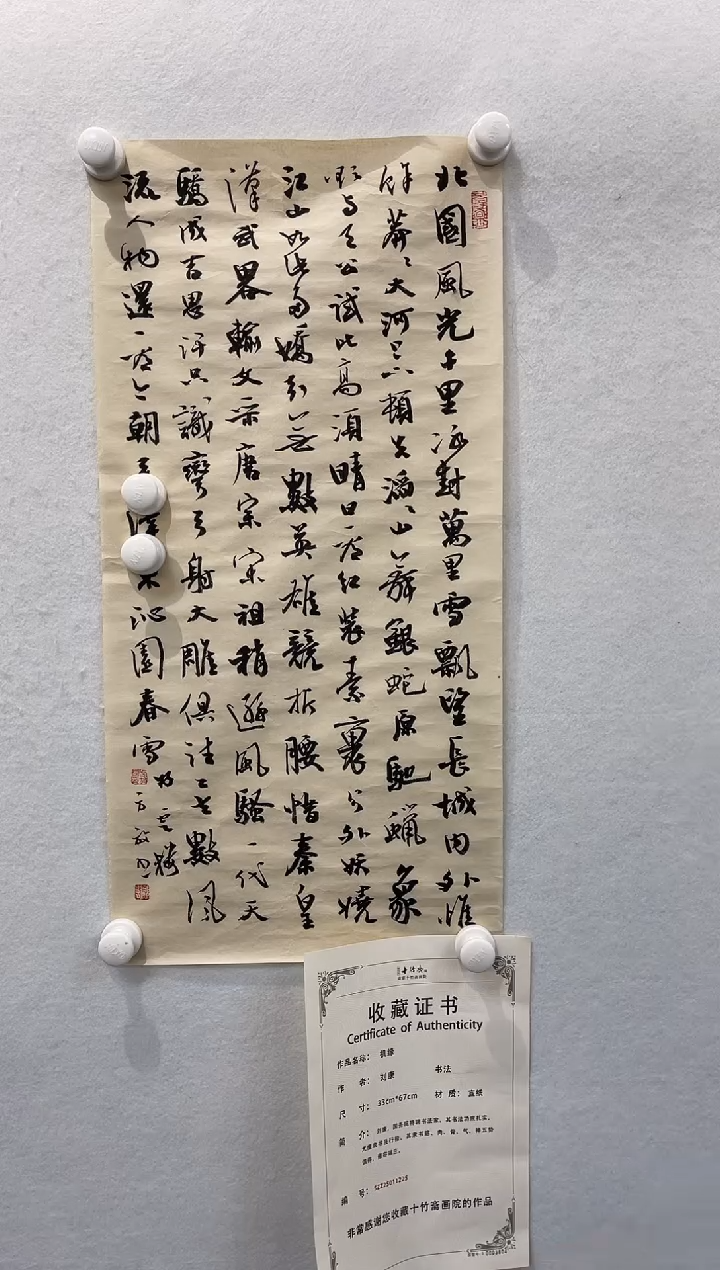 北國風光千里冰封萬里雪飄望長城内外惟
餘莽〻大河上下頓失滔〻山舞銀蛇原馳蠟象
欲与天公試比高須晴日看紅裝素裹分外妖嬈
江山如此多嬌引無數英雄競折腰惜秦皇
漢武畧輸文采唐宗宋祖稍遜風騷一代天
驕成吉思汗只識彎弓射大雕俱往矣數風
流人物還看今朝
沁園春雪
收藏证书
Certificate of Authenticity
作品名称：
作 者： 刘康 书法
尺 寸： 33cm*67cm 材 质： 宣纸
简 介：
编 号：
非常感谢您收藏十竹斋画院的作品